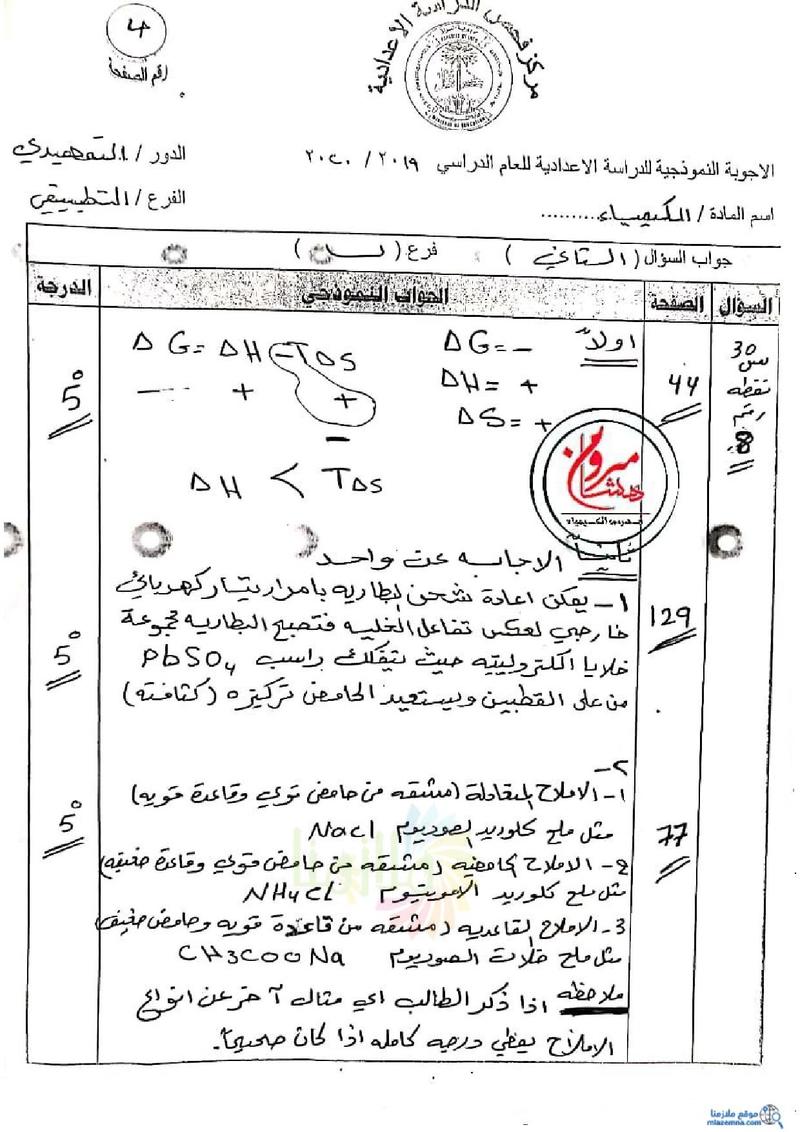 ٤
رقم الصفحة
مركز فحص الدراسة الاعدادية
الاجوبة النموذجية للدراسة الاعدادية للعام الدراسي ٢٠١٩ / ٢٠٢٠
الدور / التمهيدي
اسم المادة / الكيمياء.........
الفرع / التطبيقي
جواب السؤال ( الثاني ) فرع ( ب )
السؤال
الصفحة
الجواب النموذجي
الدرجة
س 30
نقطه
رقم
8
44
اولاً
ΔG= −
ΔH= +
ΔS= +
ΔG= ΔH −TΔS
− + +
−
ΔH < TΔS
5°
هشام
مدرس الكيمياء
ثانياً الاجابه عن واحد
129
1- يمكن اعادة شحن البطاريه بامرار تيار كهربائي
خارجي لعكس تفاعل الخليه فتصبح البطاريه مجموعة
خلايا الكتروليتيه حيث يتفكك راسب PbSO4
من على القطبين ويستعيد الحامض تركيزه (كثافته)
5°
٢-
77
١- الاملاح المتعادلة (مشتقه من حامض قوي وقاعدة قويه)
مثل ملح كلوريد الصوديوم NaCl
5°
٢- الاملاح الحامضيه (مشتقه من حامض قوي وقاعدة ضعيفه)
مثل ملح كلوريد الامونيوم NH4Cl
3- الاملاح القاعديه (مشتقه من قاعدة قويه وحامض ضعيف
مثل ملح خلات الصوديوم CH3COONa
ملاحظه اذا ذكر الطالب اي مثال آخر عن انواع
الاملاح يعطي درجه كامله اذا كان صحيحاً.
موقع ملازمنا
mlazemna.com